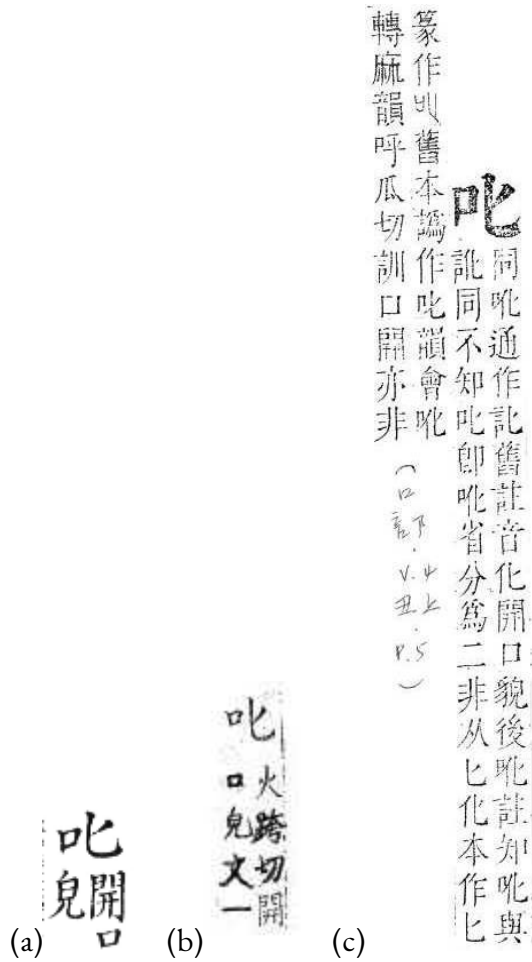 叱
開口
皃
(a)
叱
火跨切開
口皃文一
(b)
叱
同吪通作訛舊註音化開口貌後吪註知吪與
訛同不知叱卽吪省分爲二非从匕化本作匕
篆作舊本譌作叱韻會吪
轉麻韻呼瓜切訓口開亦非
（口部．V.4丑上．P.5）
(c)